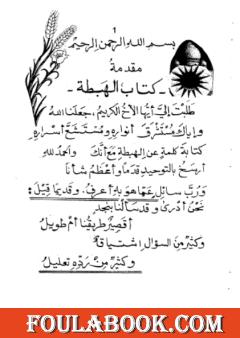 1
بسم الله الرحمن الرحيم
مقدمة
- كتاب الهبطة -
طلبت إلي أيها الأخ الكريم، جعلنا الله
وإياك مُستَشرَق أنواره ومُستَشَعَّ أسراره
كتابة كلمة عن الهبطة مع أنك والحمد لله
أرسخ بالتوحيد قدمًا وأعظم شأنًا
ورُبَّ سائل عما هو به أعرف. وقديمًا قيل:
نحن أدرى وقد سألنا بنجد
أقصير طريقنا أم طويل
وكثير من السؤال اشتياق
وكثير من رده تعليل
FOULABOOK.COM